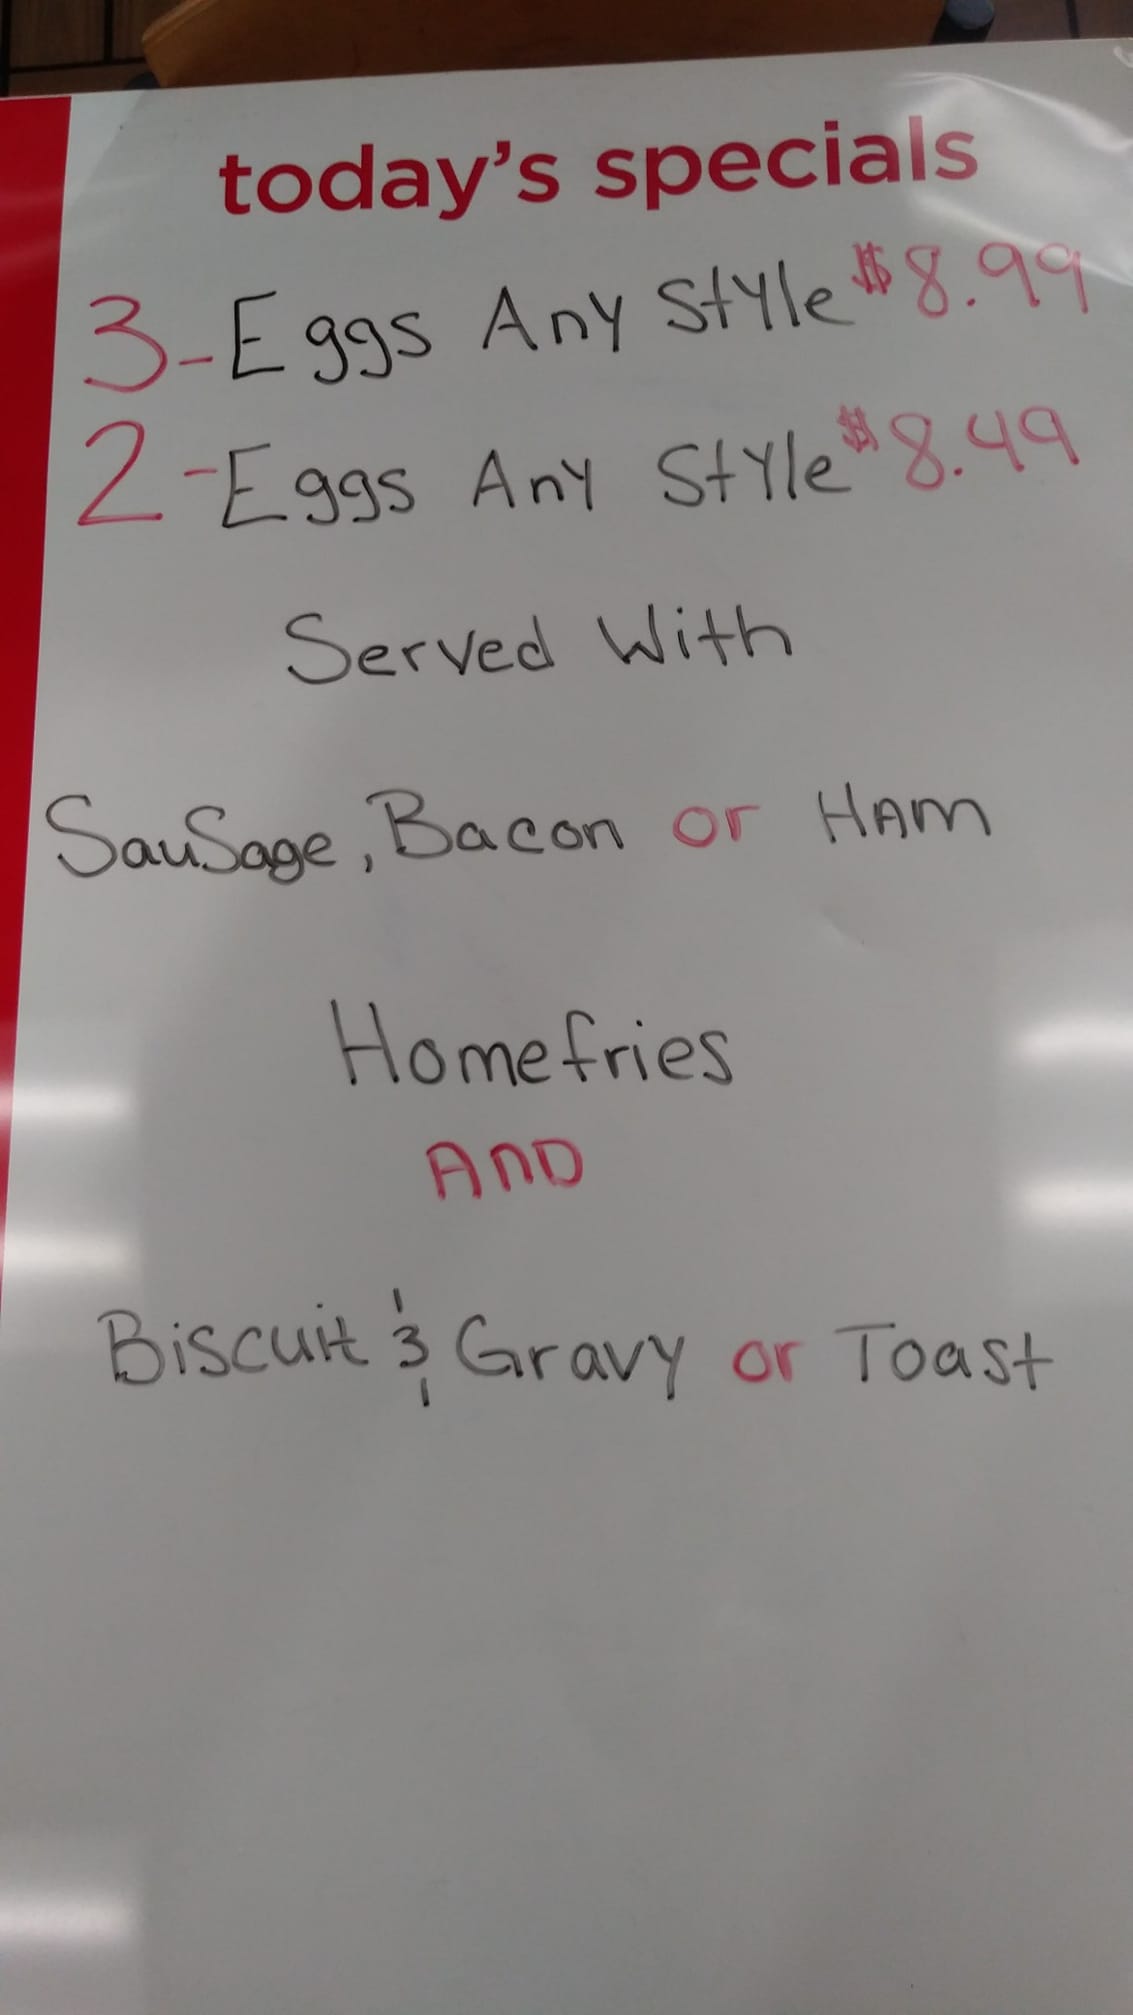 today's specials
3-Eggs Any Style $8.99
2-Eggs Any Style $8.49
Served With
SauSage, Bacon or HAm
Homefries
AnD
Biscuit & Gravy or Toast